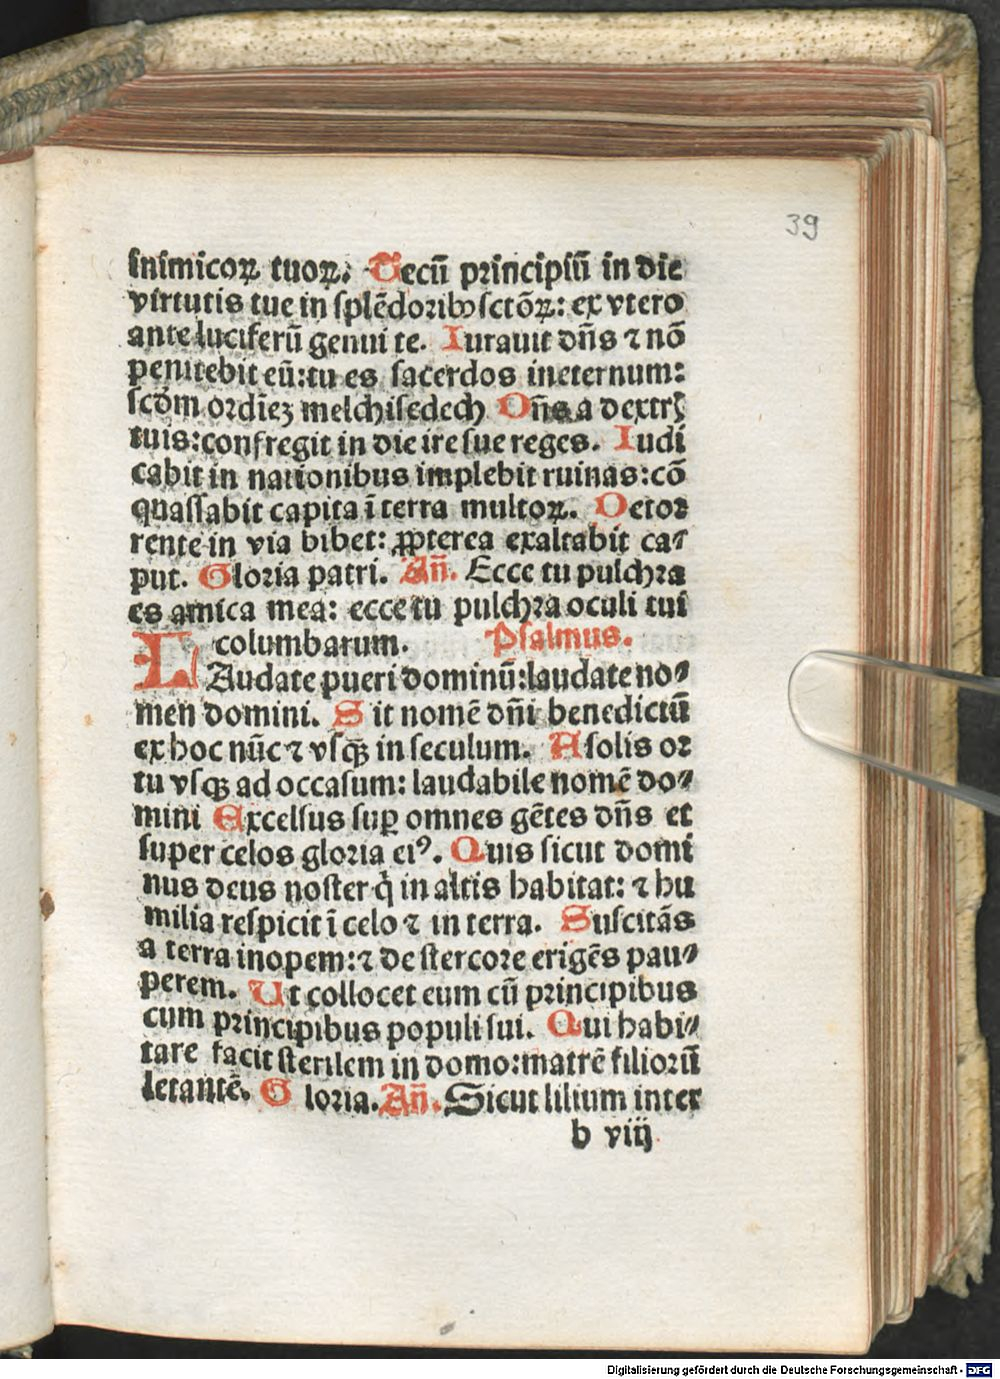 39
inimicoꝝ tuoꝝ. Tecū principiū in die
virtutis tue in ſplēdoribꝰ ſctōꝝ: ex vtero
ante luciferū genui te. Iurauit dn̄s ⁊ nō
penitebit eū: tu es ſacerdos ineternum:
ſcōm ordiēꝫ melchiſedech Dn̄s a dextrꝭ
tuis: confregit in die ire ſue reges. Iudi
cabit in nationibus implebit ruinas: cō
quaſſabit capita ī terra multoꝝ. De tor
rente in via bibet: ꝓpterea exaltabit ca⸗
put. Gloria patri. An̄. Ecce tu pulchra
es amica mea: ecce tu pulchra oculi tui
columbarum. Pſalmus.
LAudate pueri dominū: laudate no⸗
men domini. Sit nomē dn̄i benedictū
ex hoc nūc ⁊ vſqꝫ in ſeculum. A ſolis or
tu vſqꝫ ad occaſum: laudabile nomē do⸗
mini Excelſus ſuꝑ omnes gētes dn̄s et
ſuper celos gloria eiꝰ. Quis ſicut domi
nus deus noſter q̇ in altis habitat: ⁊ hu
milia reſpicit ī celo ⁊ in terra. Suſcitās
a terra inopem: ⁊ de ſtercore erigēs pau⸗
perem. Ut collocet eum cū principibus
cum principibus populi ſui. Qui habi⸗
tare facit ſterilem in domo: matrē filiorū
letantē. Gloria. An̄. Sicut lilium inter
b viij
Digitalisierung gefördert durch die Deutsche Forschungsgemeinschaft - DFG